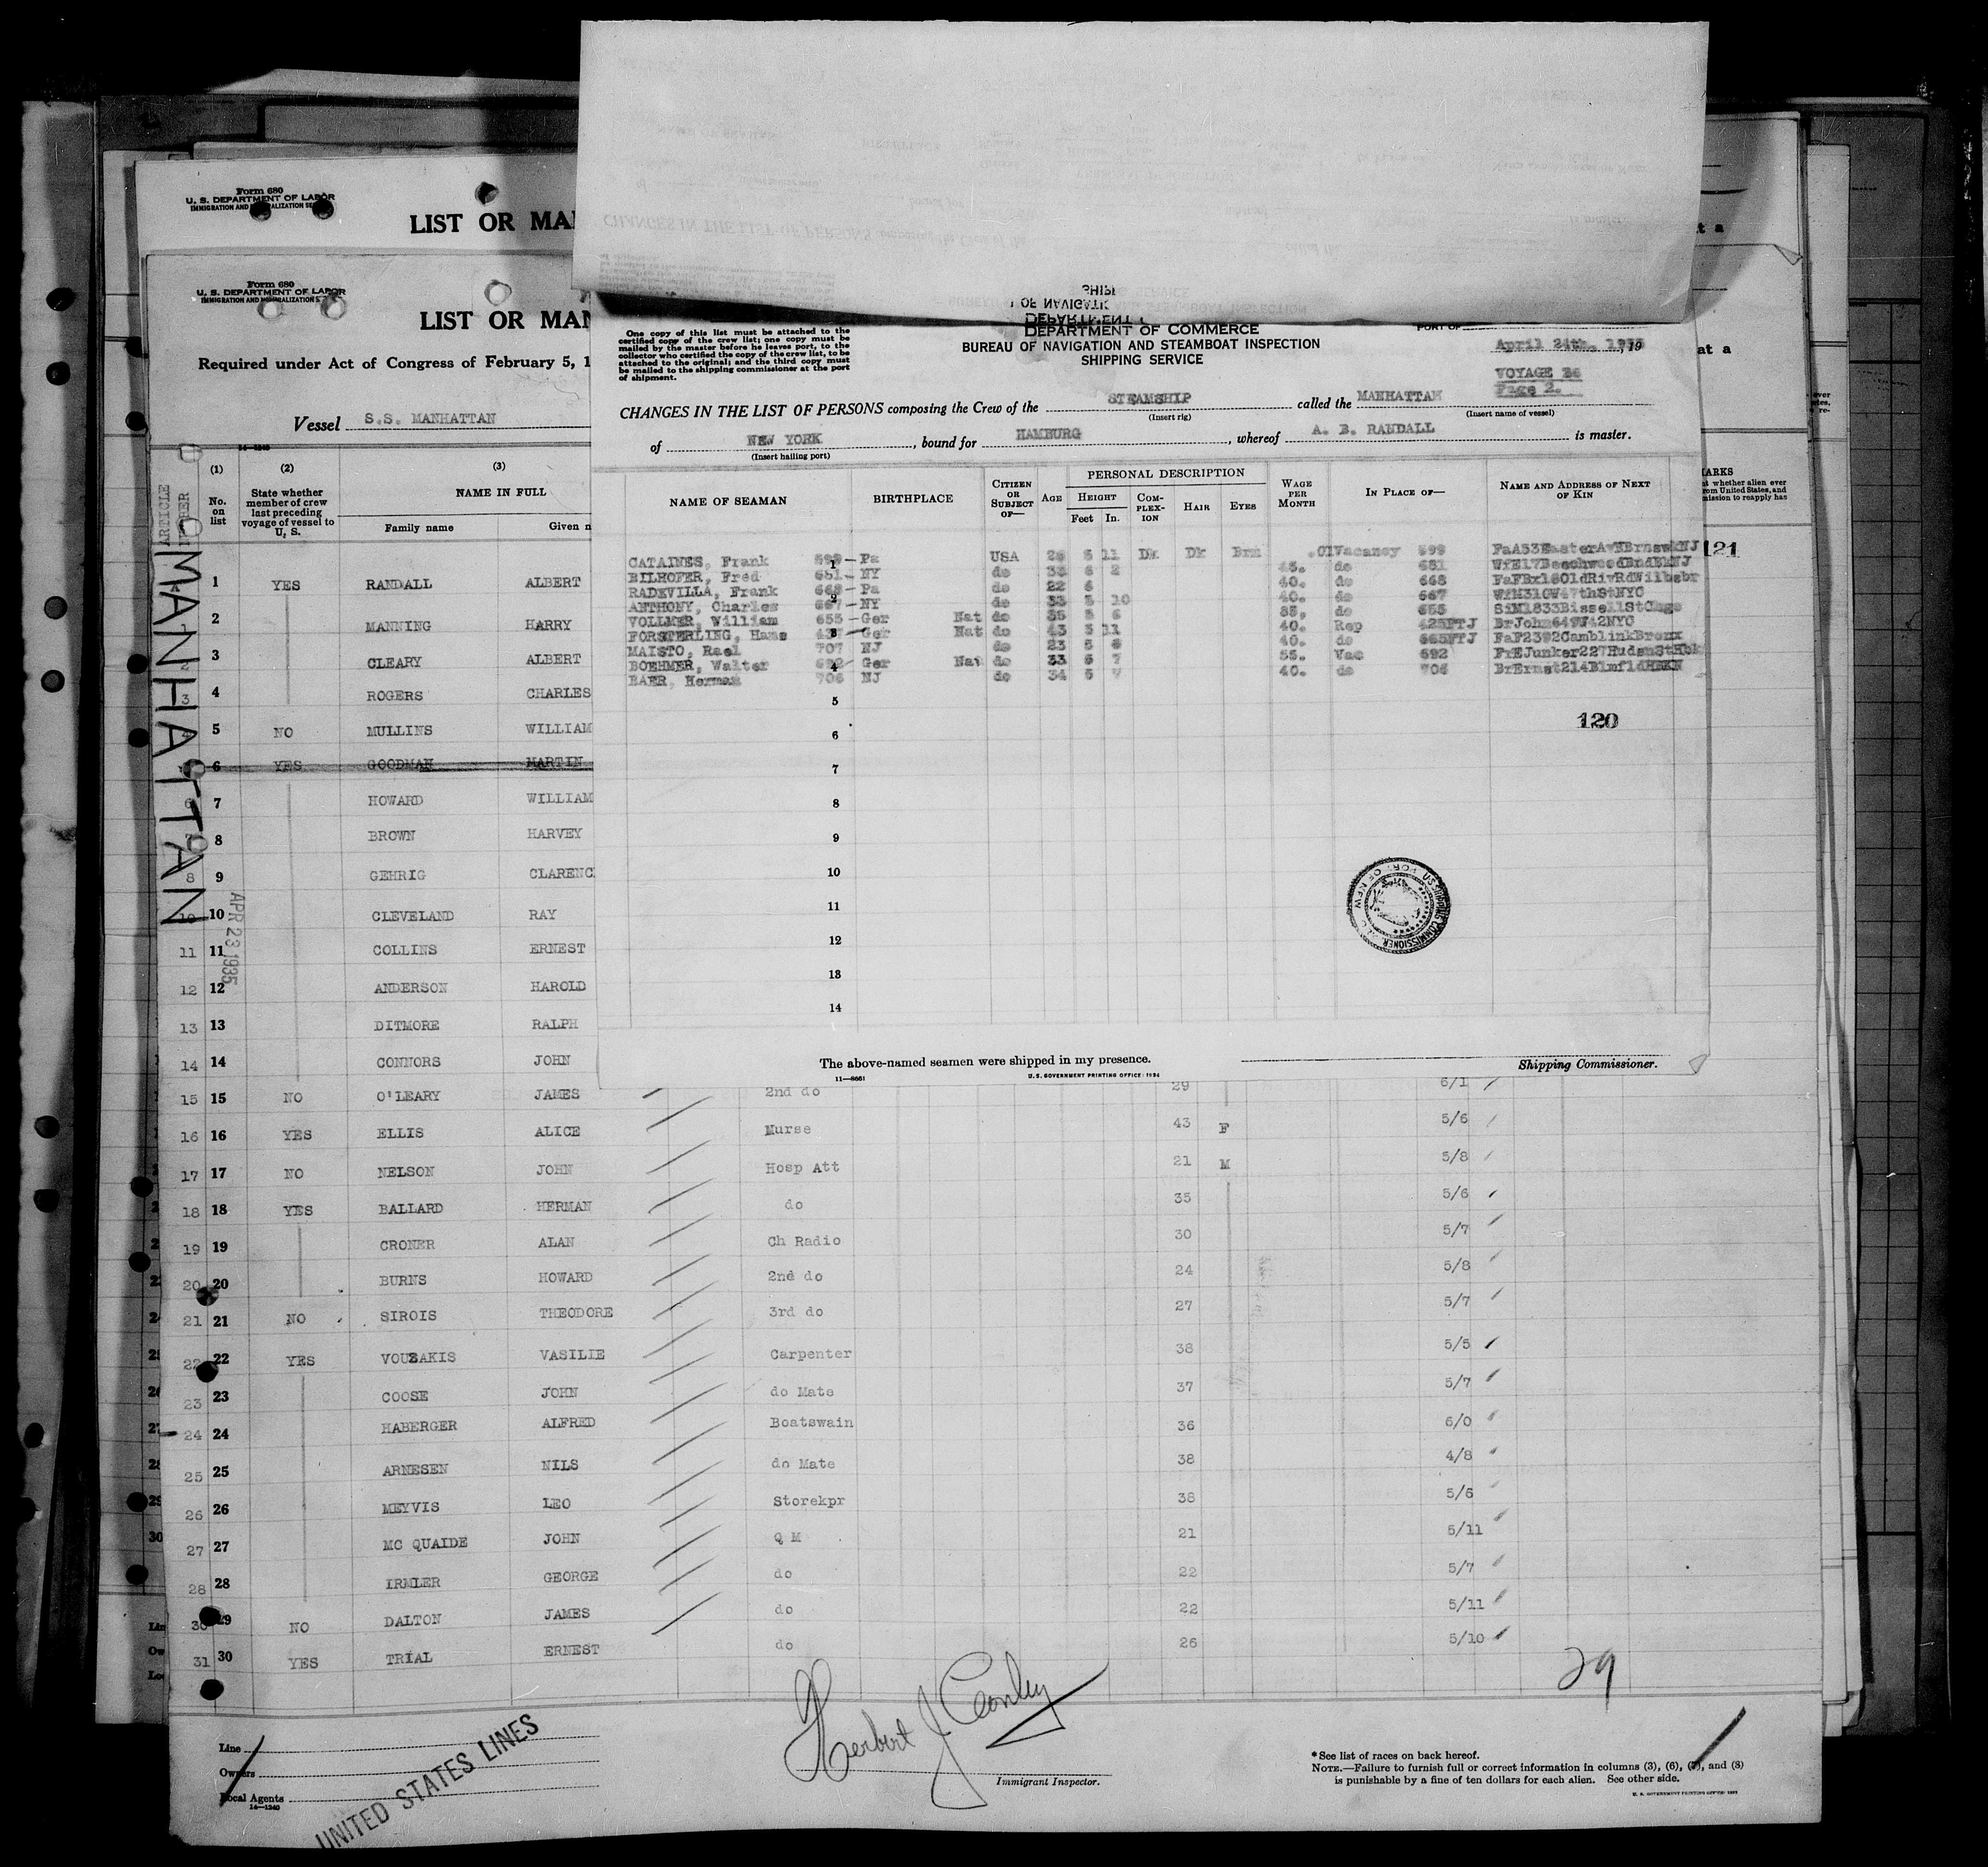 Form 680
U. S. DEPARTMENT OF LABOR
LIST OR MA
Form 680
U. S. DEPARTMENT OF LABOR
LIST OR MAN
Required under Act of Congress of February 5, 1
Vessel S.S. MANHATTAN
ARTICLE NUMBER
MANHATTAN
APR 23 1935
(1) (2) (3)
No. on list
State whether member of crew last preceding voyage of vessel to U. S.
NAME IN FULL
Family name Given n
1 YES RANDALL ALBERT
2 MANNING HARRY
3 CLEARY ALBERT
4 ROGERS CHARLES
5 NO MULLINS WILLIAM
6 YES GOODMAN MARTIN
7 HOWARD WILLIAM
8 BROWN HARVEY
8 9 GEHRIG CLARENC
10 10 CLEVELAND RAY
11 11 COLLINS ERNEST
12 12 ANDERSON HAROLD
13 13 DITMORE RALPH
14 14 CONNORS JOHN
15 15 NO O'LEARY JAMES 2nd do 29 6/1
16 16 YES ELLIS ALICE Nurse 43 F 5/6
17 17 NO NELSON JOHN Hosp Att 21 M 5/8
18 18 YES BALLARD HERMAN do 35 5/6
19 19 CRONER ALAN Ch Radio 30 5/7
20 20 BURNS HOWARD 2nd do 24 5/8
21 21 NO SIROIS THEODORE 3rd do 27 5/7
22 22 YES VOUZAKIS VASILIE Carpenter 38 5/5
23 23 COOSE JOHN do Mate 37 5/7
24 24 HABERGER ALFRED Boatswain 36 6/0
25 25 ARNESEN NILS do Mate 38 4/8
26 26 MEYVIS LEO Storekpr 38 5/6
27 27 MC QUAIDE JOHN Q M 21 5/11
28 28 IRMLER GEORGE do 22 5/7
30 29 NO DALTON JAMES do 22 5/11
31 30 YES TRIAL ERNEST do 26 5/10
29
Herbert J Conley
Immigrant Inspector.
Line
Owners
Local Agents
14—1240
UNITED STATES LINES
*See list of races on back hereof.
NOTE.—Failure to furnish full or correct information in columns (3), (6), (7), and (8)
is punishable by a fine of ten dollars for each alien. See other side.
U. S. GOVERNMENT PRINTING OFFICE
One copy of this list must be attached to the
certified copy of the crew list; one copy must be
mailed by the master before he leaves port, to the
collector who certified the copy of the crew list, to be
attached to the original; and the third copy must
be mailed to the shipping commissioner at the port
of shipment.
DEPARTMENT OF COMMERCE
BUREAU OF NAVIGATION AND STEAMBOAT INSPECTION
SHIPPING SERVICE
PORT OF
April 24th. 1935, 19
VOYAGE 36
Page 2.
CHANGES IN THE LIST OF PERSONS composing the Crew of the STEAMSHIP called the MANHATTAN
(Insert rig) (Insert name of vessel)
of NEW YORK, bound for HAMBURG, whereof A. B. RANDALL is master.
(Insert hailing port)
NAME OF SEAMAN BIRTHPLACE CITIZEN OR SUBJECT OF— AGE PERSONAL DESCRIPTION WAGE PER MONTH IN PLACE OF— NAME AND ADDRESS OF NEXT OF KIN
HEIGHT COMPLEXION HAIR EYES
Feet In.
CATAINES, Frank 599 Pa USA 26 5 11 Dk Dk Brn .01 Vacancy 599
BILHOFER, Fred 651 NY do 6 2 45. do
RADEVILLA, Frank 668 Pa do 22 6 40. do 668
ANTHONY, Charles 667 NY do 33 5 10 40. do 667 WfM310W47thStNYC
VOLLMER, William 655 Ger Nat do 35 5 6 do 655 SiM1833BissellStChgo
FORSTERLING, Hans Ger Nat do 43 5 11 40. Rep 425FTJ BrJohn649W42NYC
MAISTO, Rael 707 NJ do 23 5 40. do 665FTJ FaF2392CamblinkBronx
BOEHMER, Walter 692 Ger Nat do 33 5 7 55. Vac 692 FrEJunker227HudsnStHbk
BAER, Herman 706 NJ do 34 5 40. do 706
1
2
3
4
5
6
7
8
9
10
11
12
13
14
120
121
The above-named seamen were shipped in my presence.
Shipping Commissioner.
11—8661
U. S. GOVERNMENT PRINTING OFFICE: 1934